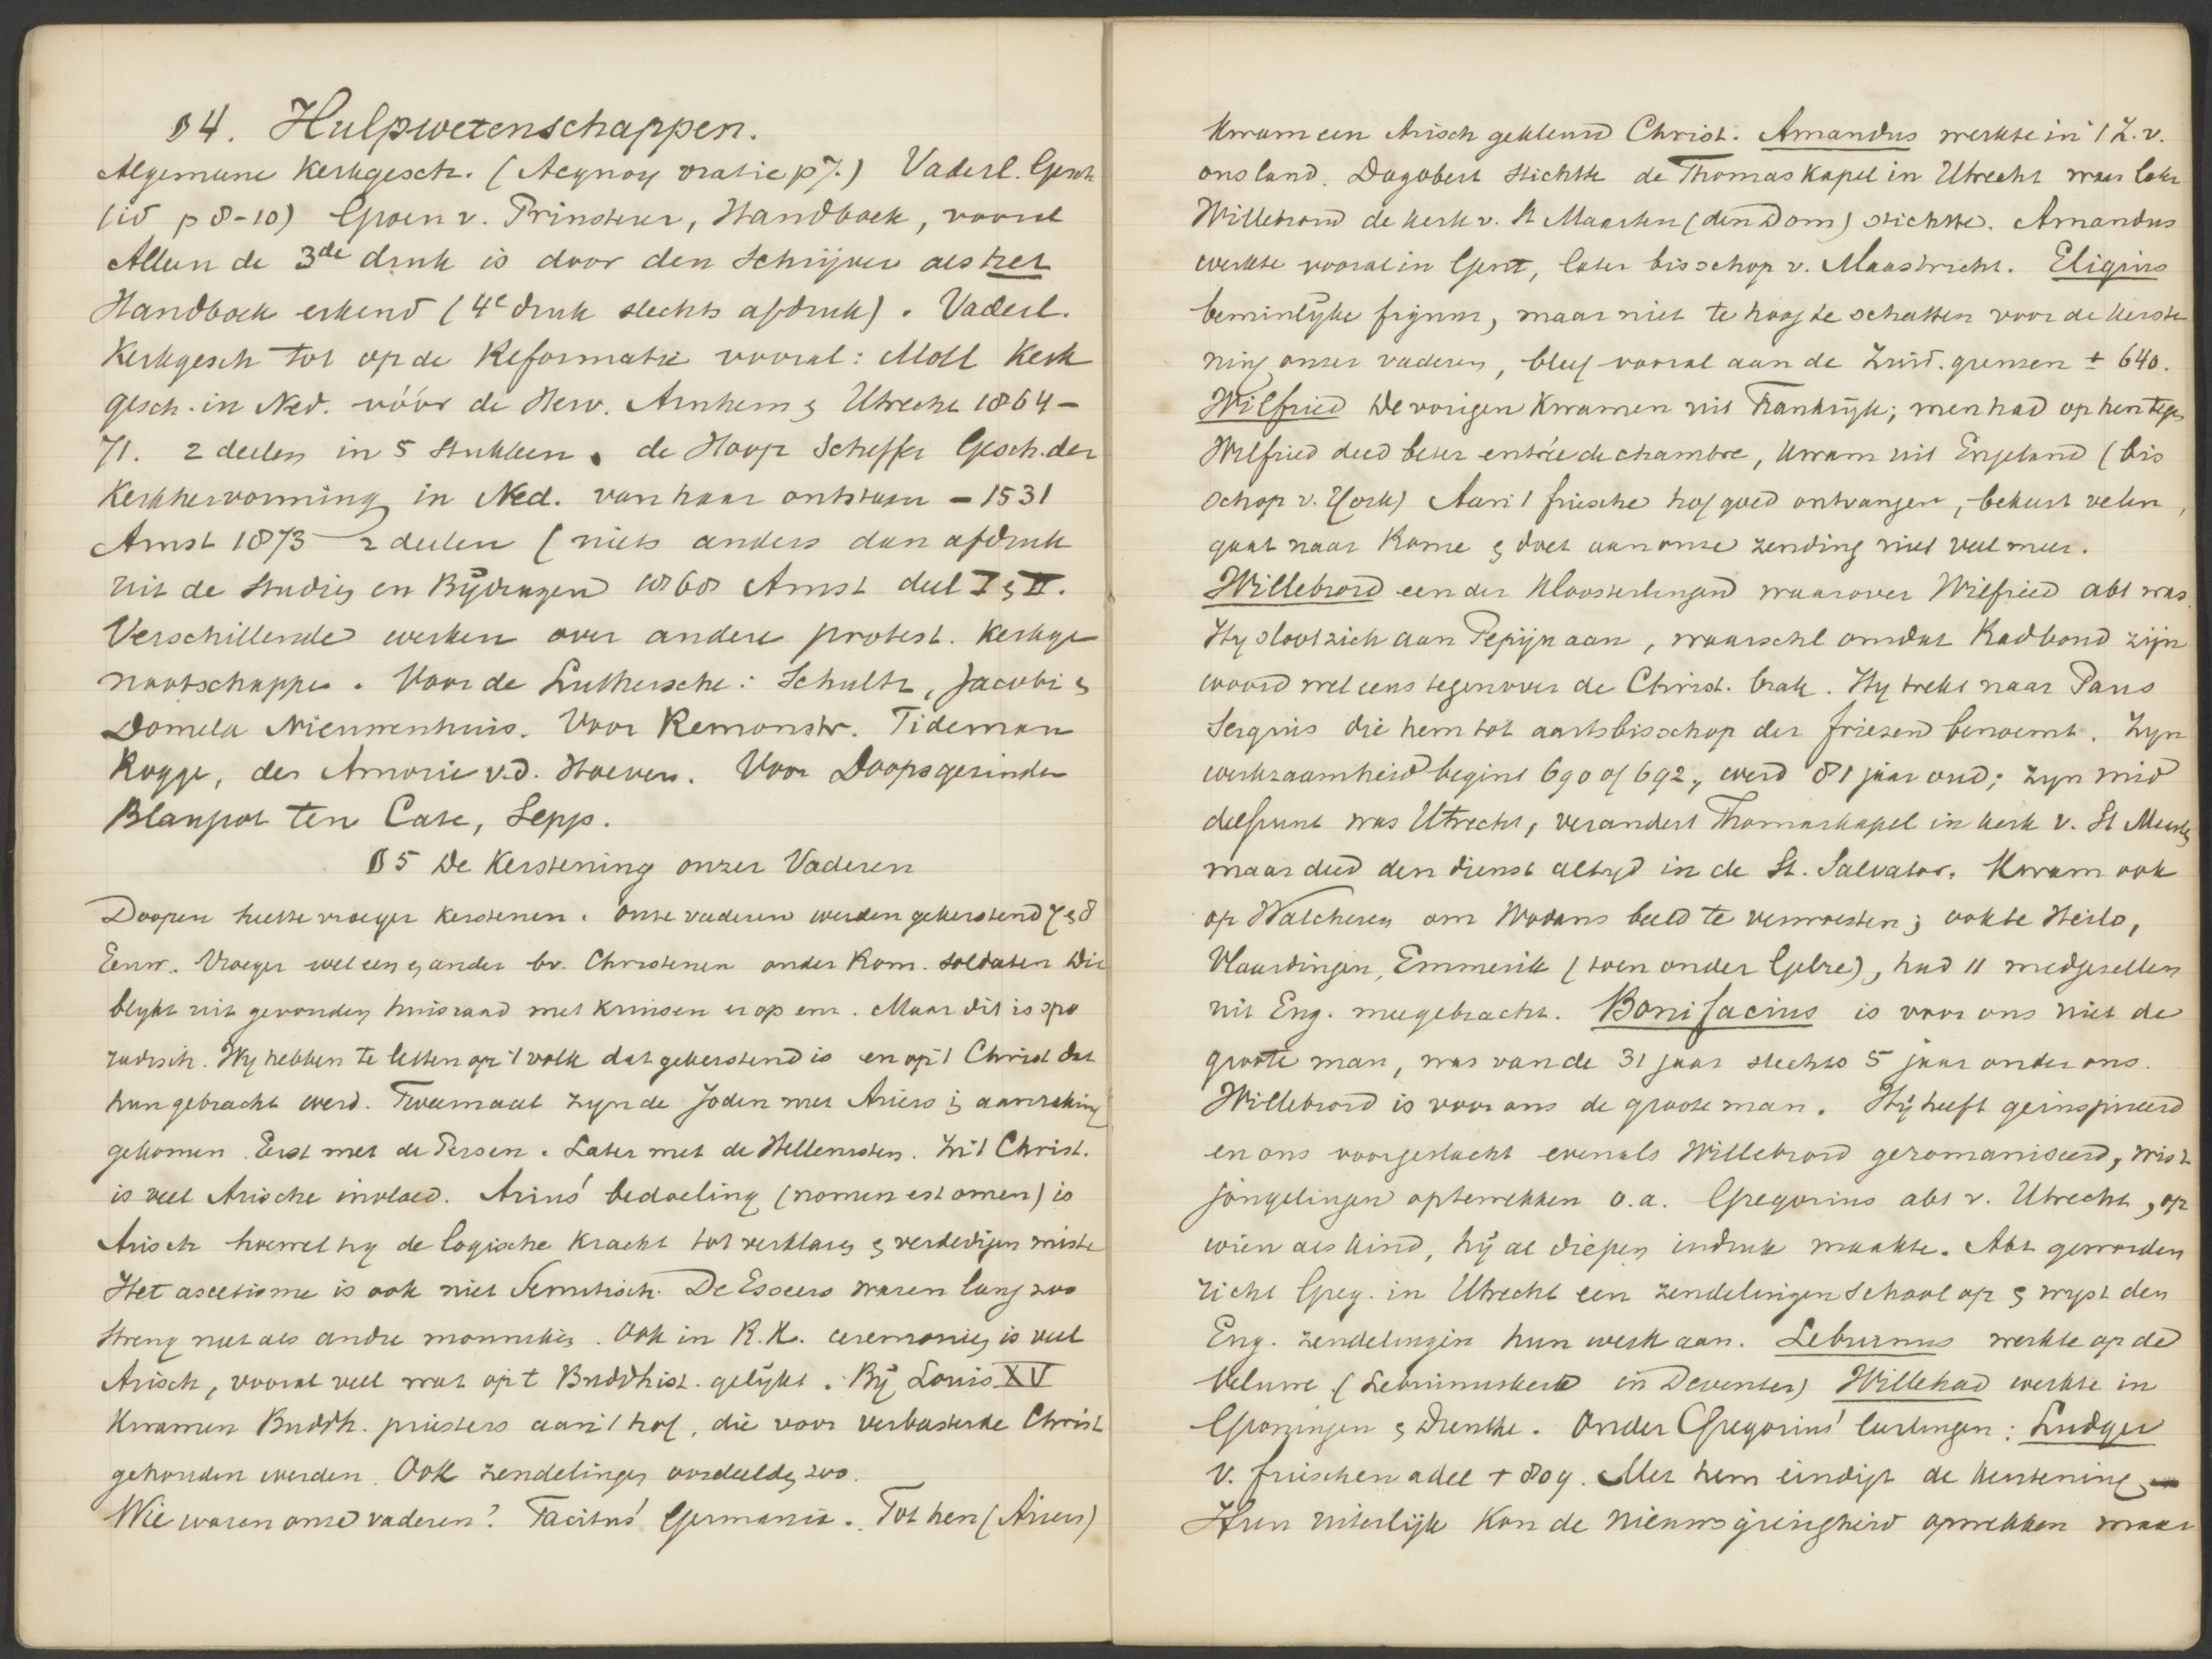 §4. Hulpwetenschappen.
Algemeene Kerkgesch. (Acquoy oratie p 7.) Vaderl. Gesch
(id p 8-10) Groen v. Prinsterer, Handboek, vooral
Alleen de 3de druk is door den Schrijver als het
Handboek erkend (4e druk slechts afdruk). Vaderl.
Kerkgesch tot op de Reformatie vooral: Moll Kerk
gesch. in Ned. vóór de Herv. Arnhem & Utrecht 1864-
71. 2 deelen in 5 stukken. de Hoop Scheffer Gesch. der
Kerkhervorming in Ned. van haar ontstaan - 1531
Amst 1873 2 deelen (niets anders dan afdruk
uit de Studien en Bijdragen 1868 Amst deel I & II.
Verschillende werken over andere protest. Kerkge
nootschappen. Voor de Luthersche: Schultz, Jacobi &
Domela Nieuwenhuis. Voor Remonstr. Tideman
Rogge, des Amorie v.d. Hoeven. Voor Doopsgezinden
Blaupot ten Cate, Sepp.
§5 De Kerstening onzer Vaderen
Doopen heette vroeger kerstenen. Onze vaderen werden gekerstend 7 & 8
Eeuw. Vroeger wel een & ander bv. Christenen onder Rom. soldaten Dit
blykt uit gevonden huisraad met kruisen er op enz. Maar dit is spo
radisch. Wy hebben te letten op 't volk dat gekerstend is en op 't Christ dat
hun gebracht werd. Tweemaal zyn de Joden met Ariers in aanraking
gekomen. Eerst met de Persen. Later met de Hellenisten. In 't Christ.
is veel Arische invloed. Arius' bedoeling (nomen est omen) is
Arisch hoewel hy de logische kracht tot verklaren & verdedigen miste
Het ascetisme is ook niet Semitisch. De Esseers waren lang zoo
streng niet als andre monniken. Ook in R.K. ceremonien is veel
Arisch, vooral veel wat op 't Buddhist. gelykt. By Louis XV
Kwamen Buddh. priesters aan 't hof, die voor verbasterde Christ
gehouden werden. Ook zendelingen oordeelden zoo.
Wie waren onze vaderen? Tacitus' Germania. Tot hen (Ariers)
Kwam een Arisch gekleurd Christ. Amandus werkte in 't Z. v.
ons land. Dagobert stichtte de Thomas Kapel in Utrecht waar later
Willebrord de kerk v. St Maarten (den Dom) stichtte. Amandus
werkte vooral in Gent, later bisschop v. Maastricht. Eligius
beminlyke figuur, maar niet te hoog te schatten voor de kerste
ning onzer vaderen, bleef vooral aan de Zuid. grenzen ± 640.
Wilfried De vorigen kwamen uit Frankryk; men had op hen tegen
Wilfried deed beter entrée de chambre, kwam uit Engeland (bis
schop v. York) Aan 't friesche hof goed ontvangen, bekeert velen,
gaat naar Rome & doet aan onze zending niet veel meer.
Willebrord een der Kloosterlingen waarover Wilfried abt was.
Hy sloot zich aan Pepijn aan, waarschl omdat Radboud zijn
woord wel eens tegenover de Christ. brak. Hy trekt naar Paus
Sergius die hem tot aartsbisschop der friezen benoemt. Zyn
werkzaamheid begint 690 of 692, werd 81 jaar oud; zyn mid
delpunt was Utrecht, verandert Thomaskapel in kerk v. St Maarten
maar deed den dienst altyd in de St. Salvator. Kwam ook
op Walcheren om Wodans beeld te verwoesten; ook te Heilo,
Vlaardingen, Emmerik (toen onder Gelre), had 11 medgezellen
uit Eng. meegebracht. Bonifacius is voor ons niet de
groote man, was van de 31 jaar slechts 5 jaar onder ons.
Willebrord is voor ons de groote man. Hij heeft geinspireerd
en ons voorgeslacht evenals Willebrord geromaniseerd, wist
jongelingen optewekken o.a. Gregorius abt v. Utrecht, op
wien als kind, hij al diepen indruk maakte. Abt geworden
richt Greg. in Utrecht een zendelingen school op & wyst den
Eng. zendelingen hun werk aan. Lebuinus werkte op de
Veluwe (Lebuinuskerk in Deventer) Willehad werkte in
Groningen & Drenthe. Onder Gregorius' leerlingen: Ludger
v. frieschen adel + 809. Met hem eindigt de kerstening
Hun uiterlijk kon de nieuwsgierigheid opwekken maar